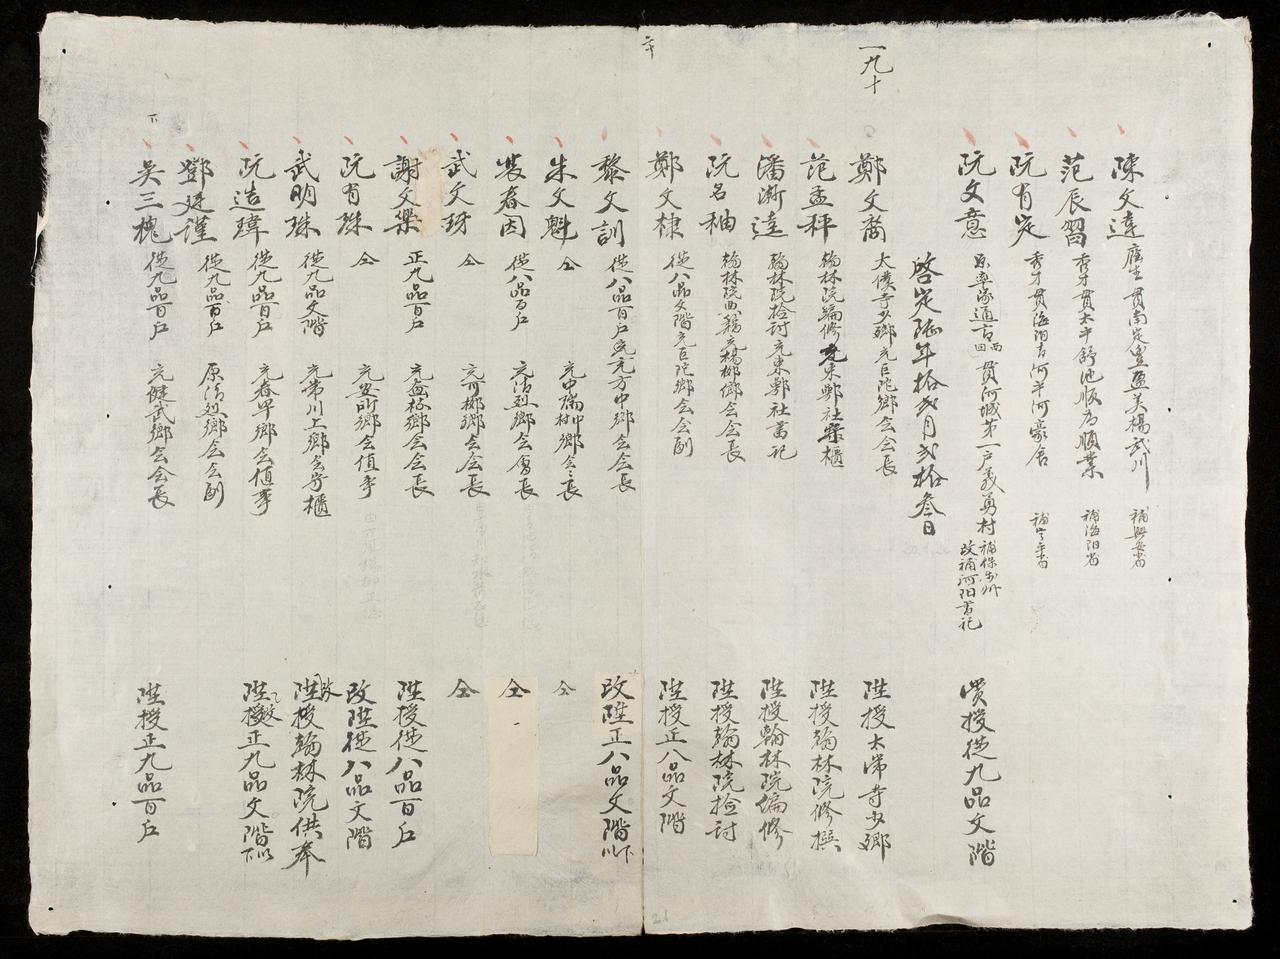 陳文達 廕生貫南定豐盈美楊武川 補興安省
范辰習 秀才貫太平舒池 順業 補海陽省
阮有定 秀才貫海陽青河平河豪舍 補 省
阮文意 率隊通古西回 貫河城第一户義勇村 補保 州 改補河陽省記 賞授從九品文階
啓定陸年拾弍月弍拾叁日
一九十
鄭文 太僕寺少卿充巨陀鄉会会長 陞授太常寺少卿
范孟秤 翰林院編修充東鄴社 櫃 陞授翰林院修撰
潘漸達 翰林院檢討充東鄴社書記 陞授翰林院編修
阮名秞 翰林院典籍充楊柳鄉会会長 陞授翰林院檢討
鄭文棣 從八品文階充巨陀鄉会会副 陞授正八品文階
黎文訓 從八品百户 充方中鄉会会長 改陞正八品文階以下
朱文魁 仝 充中 中村鄉会会長 仝
裴春因 從八品百户 充 烈鄉会會長 仝
武文玡 仝 充 柳鄉会会長 仝
謝文樂 正九品百户 充 鄉会会長 陞授從八品百户
阮有珠 仝 充安所鄉会值事 改陞從八品文階
武明珠 從九品文階 充常川上鄉会守櫃 改陞授翰林院供奉
阮造瑋 從九品百户 充春早鄉会值事 陞授正九品文階以下
鄧廷謹 從九品百户 原 烈鄉会会副
吴三槐 從九品百户 充健武鄉会会長 陞授正九品百户